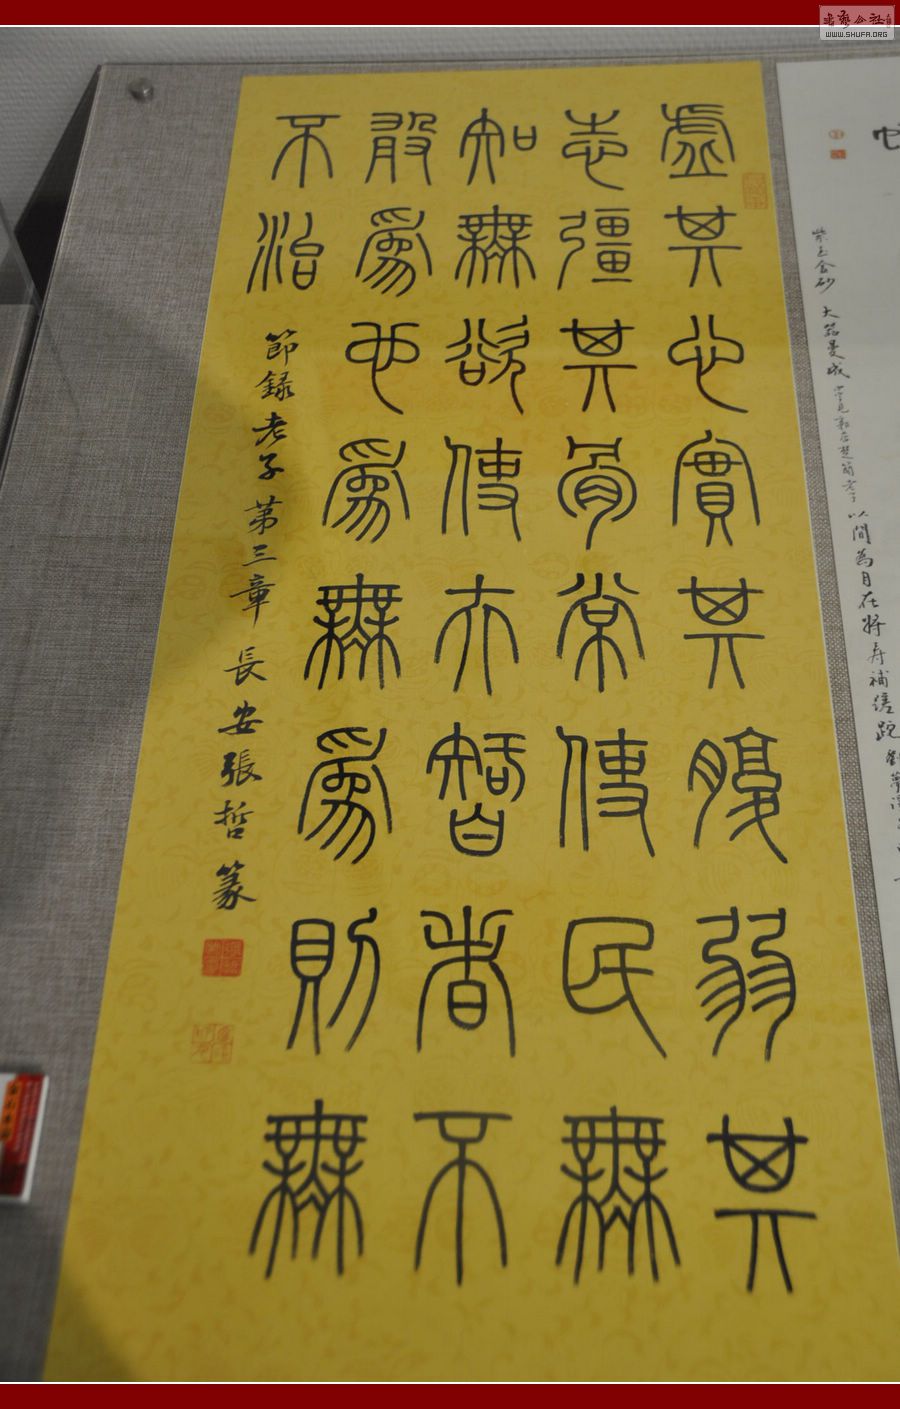 虛其心實其腹弱其
志彊其骨常使民無
知無欲使夫智者不
敢爲也爲無爲則無
不治
節録老子第三章 長安張哲篆
紫玉金砂 大器曼成 嘗見郭店楚簡老子 以間為自在將壽補蹉跎
WWW.SHUFA.ORG